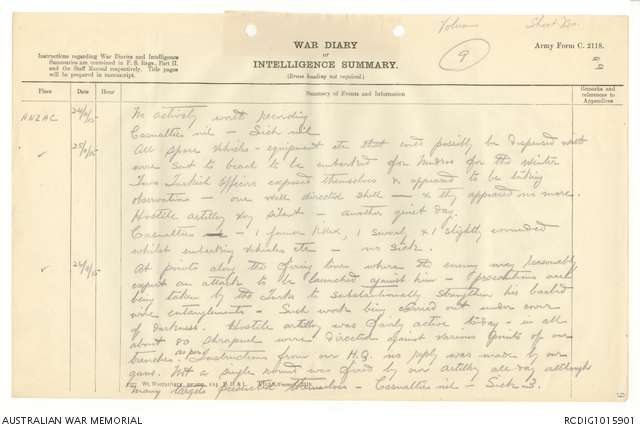 Volume
Sheet No.
9
WAR DIARY
or
INTELLIGENCE SUMMARY.
(Erase heading not required.)
Army Form C. 2118.
Instructions regarding War Diaries and Intelligence
Summaries are contained in F. S. Regs., Part II.
and the Staff Manual respectively. Title pages
will be prepared in manuscript.
Place Date Hour Summary of Events and Information Remarks and references to Appendices
ANZAC 24/11/15 No activity worth recording
Casualties nil – Sick nil
✓ 25/11/15 All spare vehicles – equipment etc that could possibly be dispensed with
were sent to beach to be embarked for Mudros for the winter
Two Turkish officers exposed themselves & appeared to be taking
observations – one well directed shell – & they appeared no more.
Hostile artillery very silent – another quiet day.
Casualties – 1 farrier killed, 1 severely & 1 slightly wounded
whilst embarking vehicles etc – no sick.
✓ 26/11/15 At points along the firing line where the enemy may reasonably
expect an attack to be launched against him – precautions are
being taken by the Turks to substantionally strengthen his barbed
wire entanglements – Such work being carried out under cover
of darkness. Hostile artillery was fairly active today – in all
about 80 shrapnel were directed against various points of our
trenches as per Instructions from our H.Q. no reply was made by our
guns. Not a single round was fired by our artillery all day although
many targets presented themselves – Casualties nil – Sick 3.
AUSTRALIAN WAR MEMORIAL
RCDIG1015901